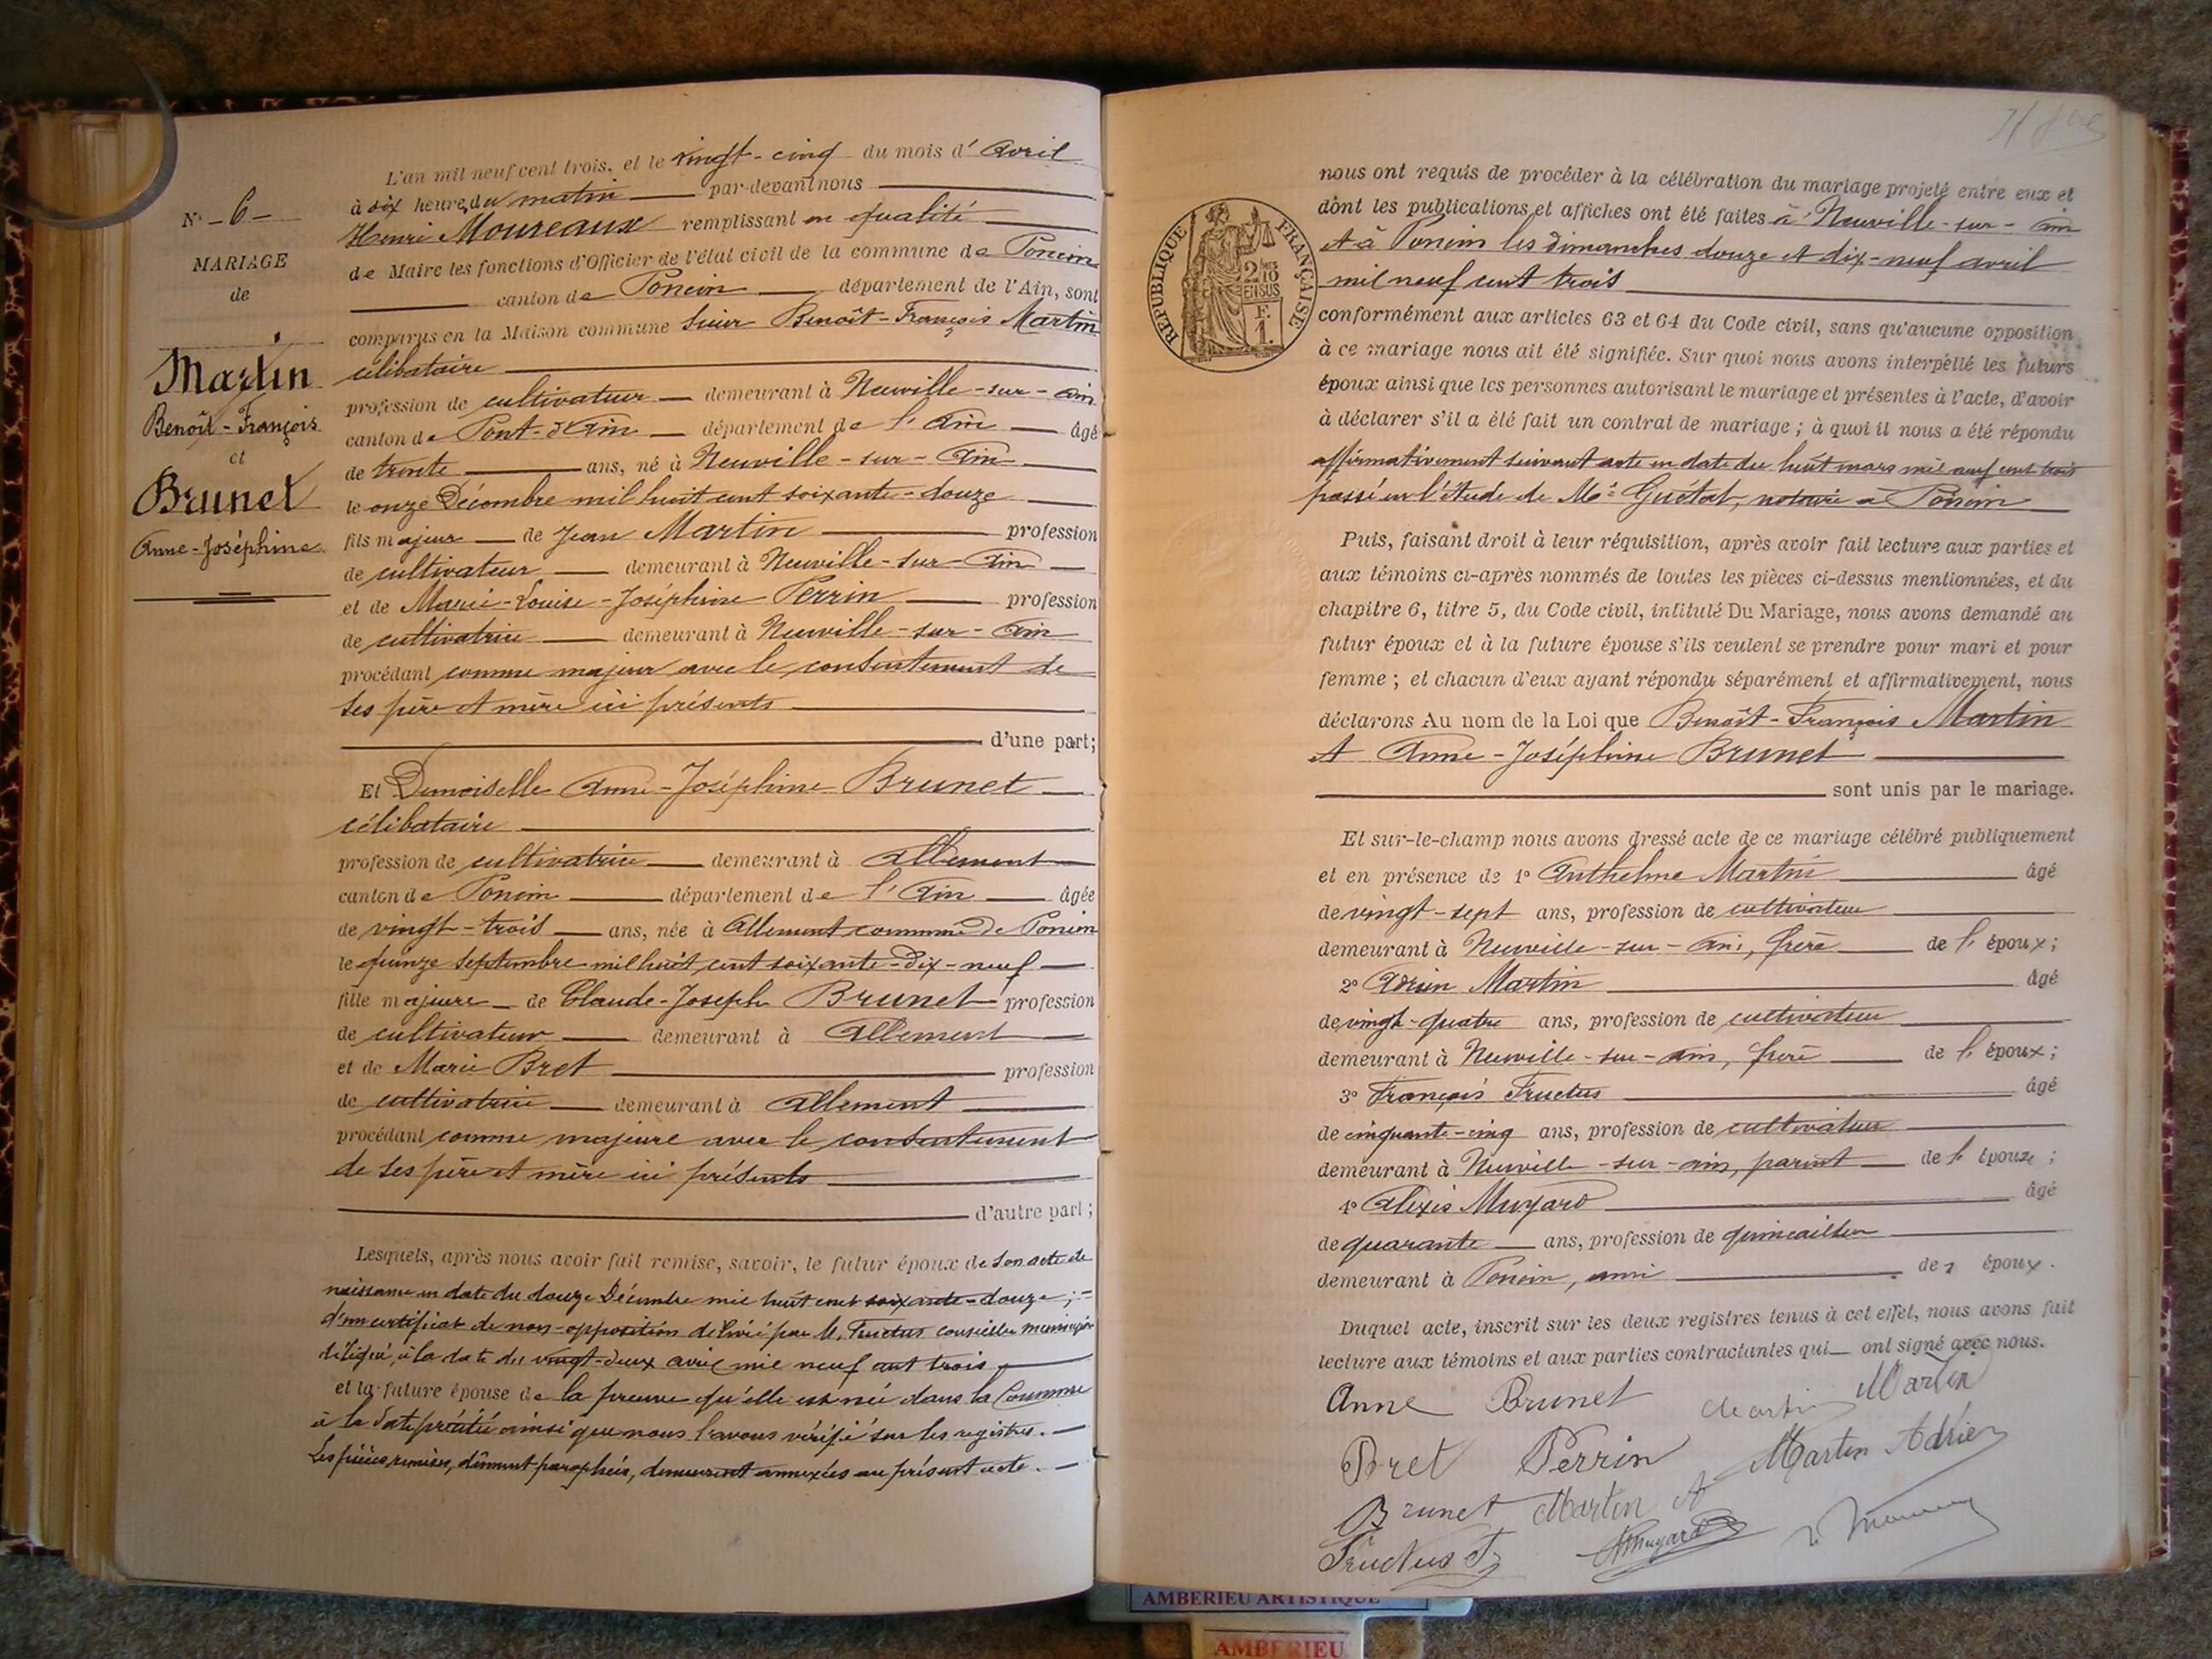 N° - 6 -
MARIAGE
de
Martin
Benoît - François
et
Brunet
Anne - Joséphine
L'an mil neuf cent trois, et le vingt - cinq du mois d' Avril
à dix heures du matin par-devant nous
Henri Moureaux remplissant en qualité
de Maire les fonctions d'Officier de l'état civil de la commune de Poncin
canton de Poncin département de l'Ain, sont
comparus en la Maison commune Sieur Benoît - François Martin
célibataire
profession de cultivateur demeurant à Neuville - sur - Ain
canton de Pont - d'Ain département de l' Ain âgé
de trente ans, né à Neuville - sur - Ain
le onze Décembre mil huit cent soixante - douze
fils majeur de Jean Martin profession
de cultivateur demeurant à Neuville - sur - Ain
et de Marie - Louise - Joséphine Perrin profession
de cultivatrice demeurant à Neuville - sur - Ain
procédant comme majeur avec le consentement de
ses père et mère ici présents
d'une part;
Et Demoiselle Anne - Joséphine Brunet
célibataire
profession de cultivatrice demeurant à Allement
canton de Poncin département de l' Ain âgée
de vingt - trois ans, née à Allement commune de Poncin
le quinze Septembre mil huit cent soixante - dix - neuf
fille majeure de Claude - Joseph Brunet profession
de cultivateur demeurant à Allement
et de Marie Bret profession
de cultivatrice demeurant à Allement
procédant comme majeure avec le consentement
de ses père et mère ici présents
d'autre part;
Lesquels, après nous avoir fait remise, savoir, le futur époux de son acte de
naissance en date du douze Décembre mil huit cent soixante - douze ;
d'un certificat de non - opposition délivré par M. Fructus conseiller municipal
délégué, à la date du vingt - deux avril mil neuf cent trois
et la future épouse de la preuve qu'elle est née dans la Commune
à la date précitée ainsi que nous l'avons vérifié sur les registres.
Les pièces remises, dûment paraphées, demeurent annexées au présent acte.
RÉPUBLIQUE FRANÇAISE
2/10
EN SUS
F.
1.
nous ont requis de procéder à la célébration du mariage projeté entre eux et
dont les publications et affiches ont été faites à Neuville - sur - Ain
et à Poncin les dimanches douze et dix - neuf avril
mil neuf cent trois
conformément aux articles 63 et 64 du Code civil, sans qu'aucune opposition
à ce mariage nous ait été signifiée. Sur quoi nous avons interpellé les futurs
époux ainsi que les personnes autorisant le mariage et présentes à l'acte, d'avoir
à déclarer s'il a été fait un contrat de mariage ; à quoi il nous a été répondu
affirmativement suivant acte en date du huit mars mil neuf cent trois
passé en l'étude de Me Guétat, notaire à Poncin
Puis, faisant droit à leur réquisition, après avoir fait lecture aux parties et
aux témoins ci-après nommés de toutes les pièces ci-dessus mentionnées, et du
chapitre 6, titre 5, du Code civil, intitulé Du Mariage, nous avons demandé au
futur époux et à la future épouse s'ils veulent se prendre pour mari et pour
femme ; et chacun d'eux ayant répondu séparément et affirmativement, nous
déclarons Au nom de la Loi que Benoît - François Martin
et Anne - Joséphine Brunet
sont unis par le mariage.
Et sur-le-champ nous avons dressé acte de ce mariage célébré publiquement
et en présence de 1° Anthelme Martin âgé
de vingt - sept ans, profession de cultivateur
demeurant à Neuville - sur - Ain, frère de l' époux;
2° Adrien Martin âgé
de vingt - quatre ans, profession de cultivateur
demeurant à Neuville - sur - Ain, frère de l' époux;
3° François Fructus âgé
de cinquante - cinq ans, profession de cultivateur
demeurant à Neuville - sur - Ain, parent de l' épouse ;
4° Alexis Muyard âgé
de quarante ans, profession de quincailler
demeurant à Poncin, ami de époux.
Duquel acte, inscrit sur les deux registres tenus à cet effet, nous avons fait
lecture aux témoins et aux parties contractantes qui ont signé avec nous.
Anne Brunet Martin Martin
Bret Perrin Martin Adrien
Brunet Martin A
Fructus F AMuyard
AMBERIEU ARTISTIQUE
AMBERIEU